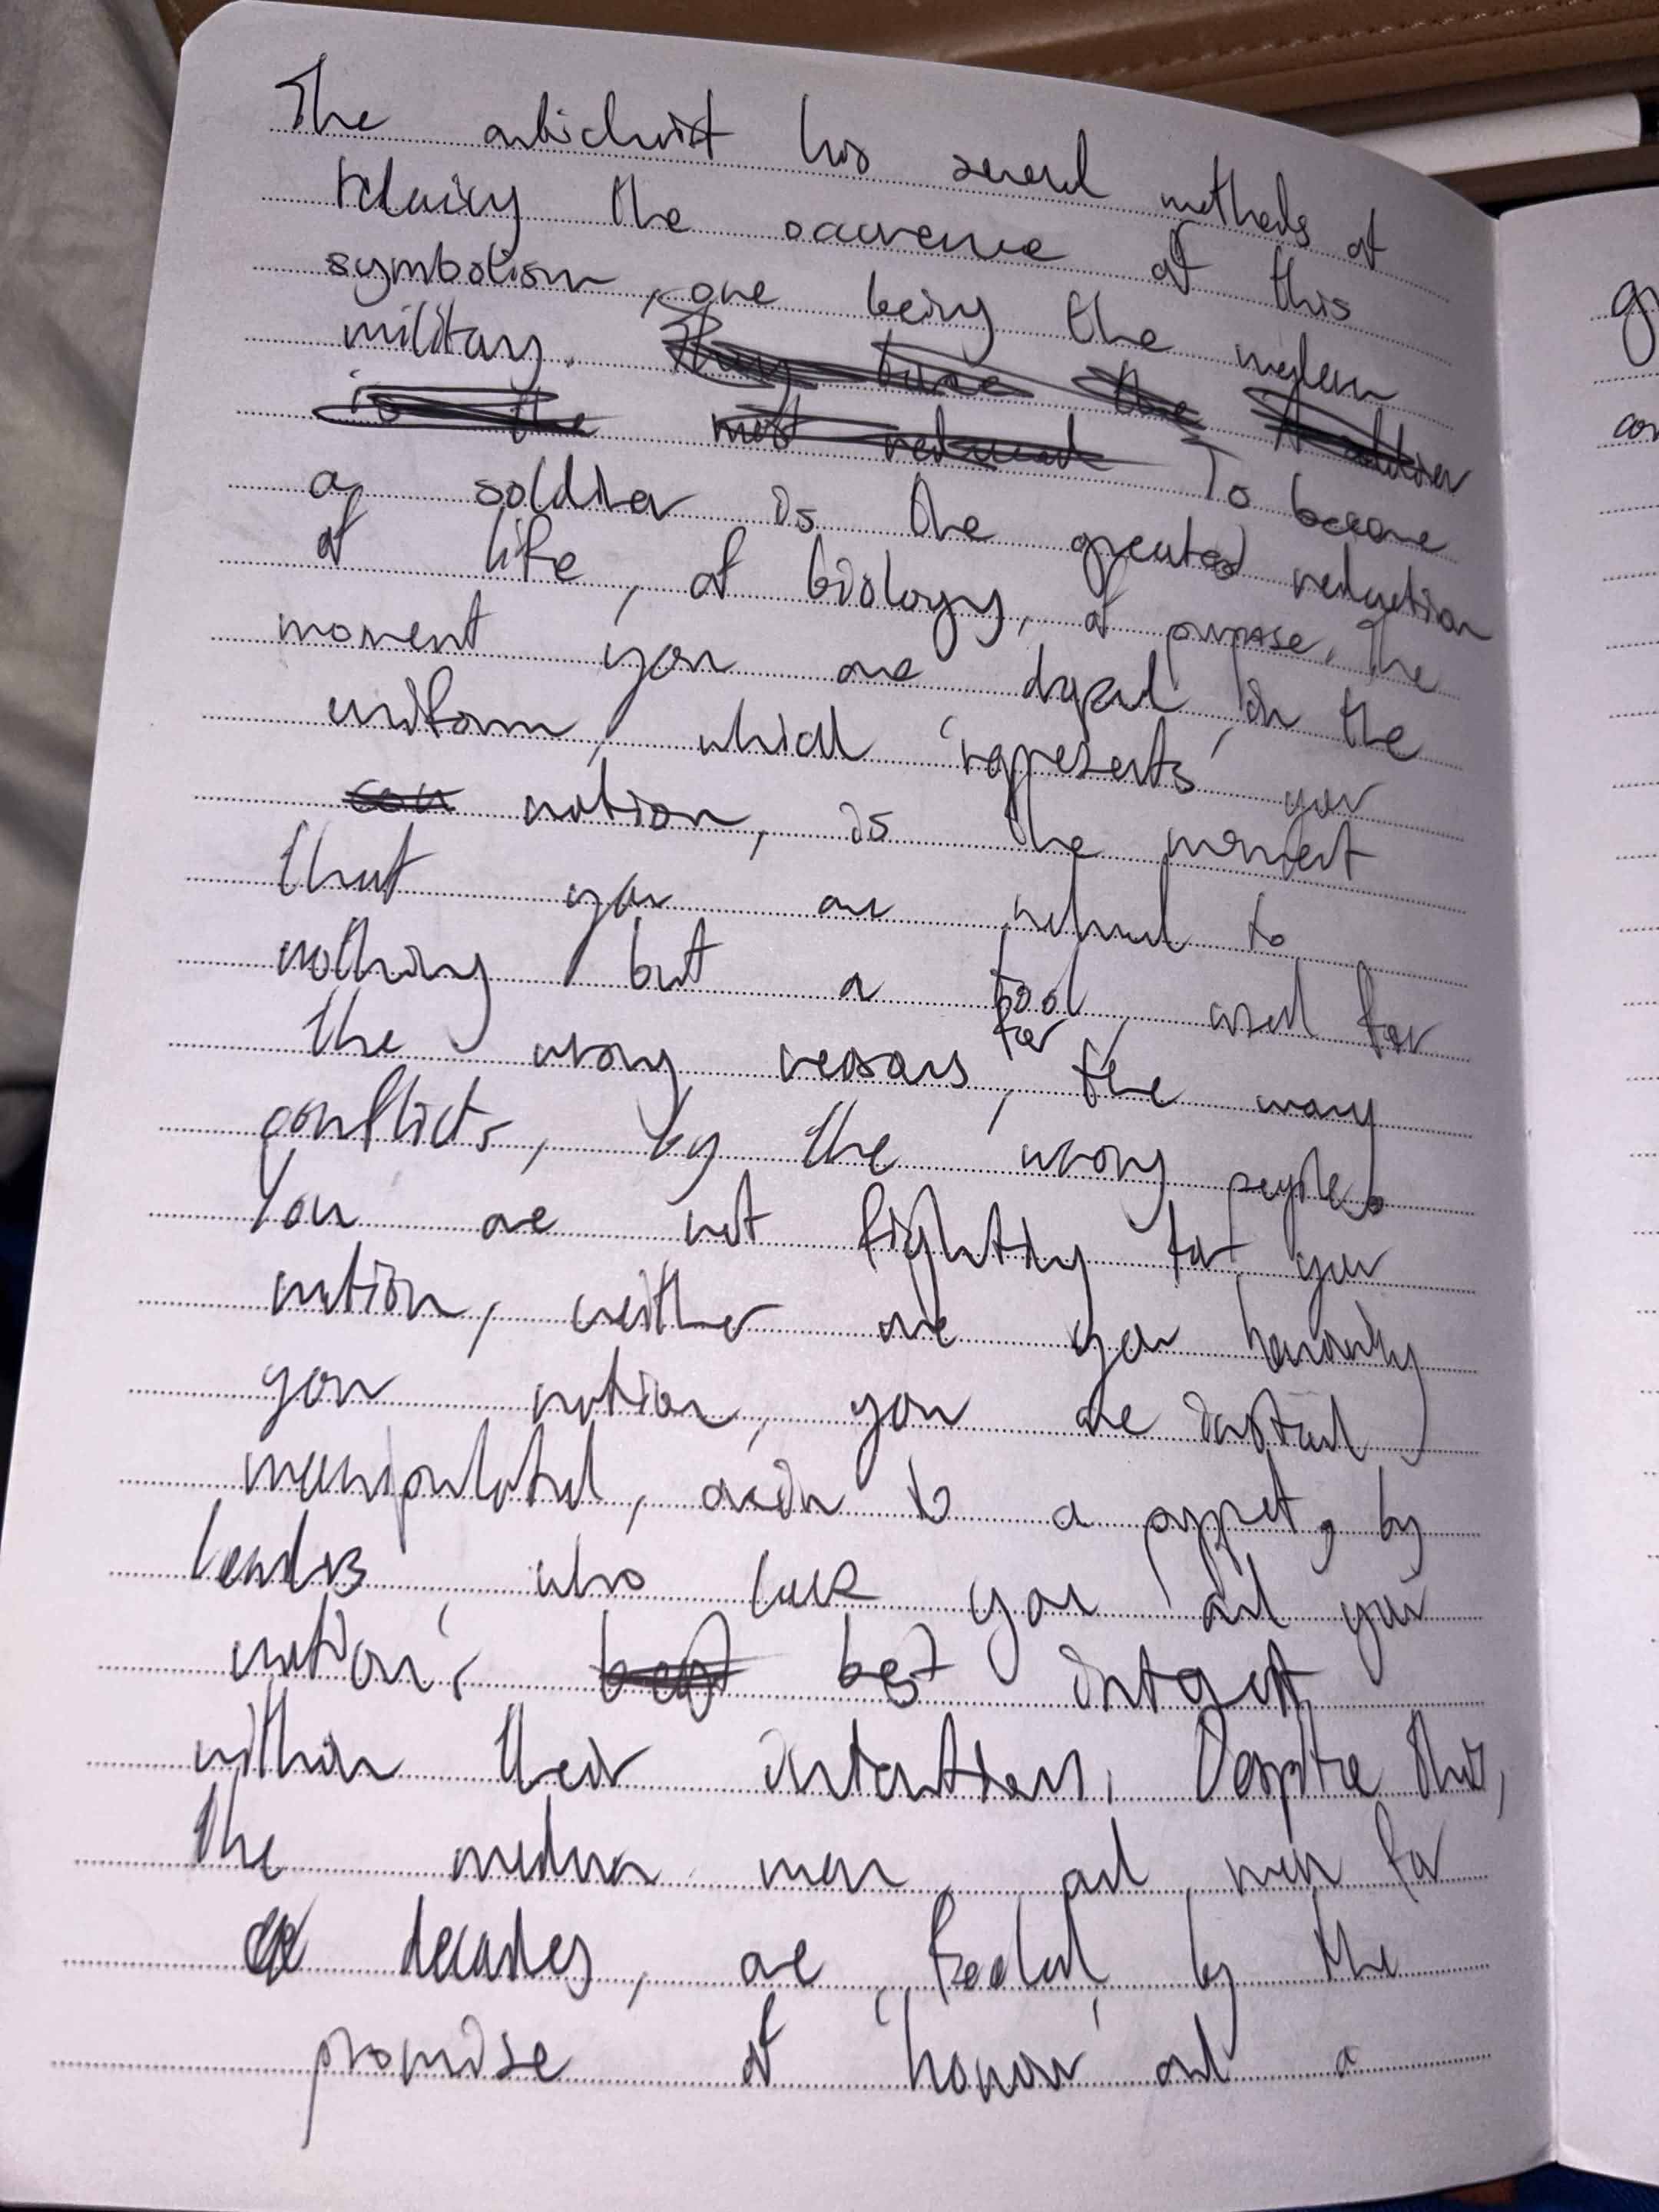 The antichrist has several methods of
the occurence of this
symbolism, one being the modern
military. They turn the soldier
is the most reduced To become
a soldier is the greatest reduction
of life, of biology, of purpose. The
moment you are draped in the
uniform, which 'represents' your
nation, is the moment
that you are reduced to
nothing but a tool, used for
the wrong reasons, for the wrong
conflicts, by the wrong people.
You are not fighting for your
nation, neither are you honouring
your nation, you are instead
manipulated, akin to a puppet, by
leaders who lack you and your
nation's best best interest
within their intentions. Despite this,
the modern man, and men for
decades, are fooled by the
promise of 'honour' and a
go
con